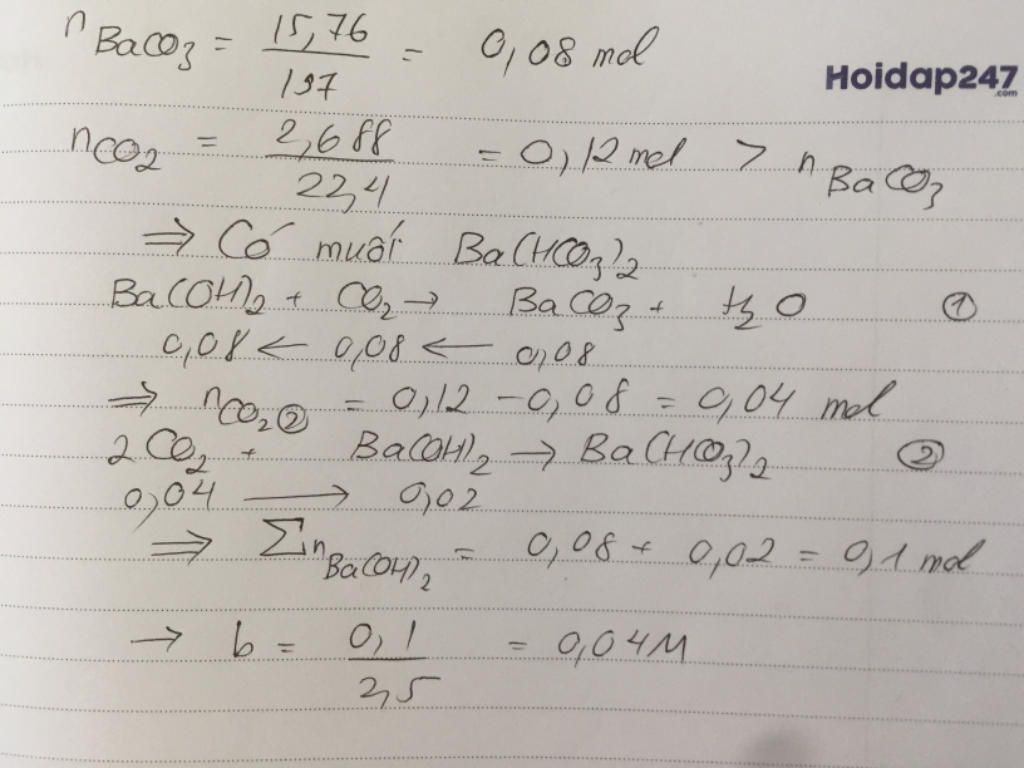 nBaCO3 = 15,76/197 = 0,08 mol
Hoidap247.com
nCO2 = 2,688/22,4 = 0,12 mol > nBaCO3
⇒ Có muối Ba(HCO3)2
Ba(OH)2 + CO2 → BaCO3 + H2O ①
0,08 ← 0,08 ← 0,08
⇒ nCO2② = 0,12 - 0,08 = 0,04 mol
2CO2 + Ba(OH)2 → Ba(HCO3)2 ②
0,04 → 0,02
⇒ ΣnBa(OH)2 = 0,08 + 0,02 = 0,1 mol
→ b = 0,1/2,5 = 0,04M